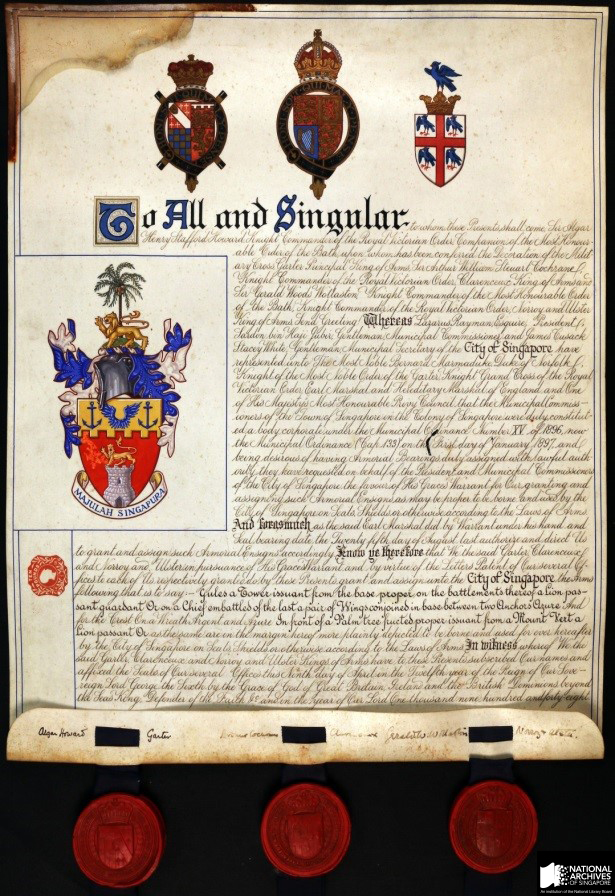 To All and Singular to whom these Presents shall come, Sir Algar
Henry Stafford Howard Knight Commander of the Royal Victorian Order Companion of the Most Honour-
able Order of the Bath, upon whom has been conferred the Decoration of the Milit-
ary Cross Garter Principal King of Arms, Sir Arthur William Steuart Cochrane
Knight Commander of the Royal Victorian Order, Clarenceux King of Arms and
Sir Gerald Woods Wollaston Knight Commander of the Most Honourable Order
of the Bath, Knight Commander of the Royal Victorian Order, Norroy and Ulster
King of Arms Send Greeting! Whereas Lazarus Rayman Esquire, President,
Hardon bin Haji Jubir Gentleman Municipal Commissioner and James Cusack
Stacey White, Gentleman Municipal Secretary of the City of Singapore have
represented unto The Most Noble Bernard Marmaduke Duke of Norfolk
Knight of the Most Noble Order of the Garter, Knight Grand Cross of the Royal
Victorian Order Earl Marshal and Hereditary Marshal of England and One
of His Majesty's Most Honourable Privy Council, that the Municipal Commiss-
ioners of the Town of Singapore in the Colony of Singapore were duly constitut-
ed a body corporate under the Municipal Ordinance Number XV of 1896, now
the Municipal Ordinance (Cap. 133) on the First day of January 1897 and
being desirous of having Armorial Bearings duly assigned with lawful auth-
ority, they have requested on behalf of the President and Municipal Commissioners
of the City of Singapore the favour of His Grace's Warrant for Our granting and
assigning such Armorial Ensigns as may be proper to be borne and used by the
City of Singapore on Seals Shields or otherwise according to the Laws of Arms
And forasmuch as the said Earl Marshal did by Warrant under his hand and
Seal bearing date the Twenty fifth day of August last authorize and direct Us
to grant and assign such Armorial Ensigns accordingly Know ye therefore that We the said Garter Clarenceux
and Norroy and Ulster in pursuance of His Grace's Warrant and by virtue of the Letters Patent of Our several Of-
fices to each of Us respectively granted do by these Presents grant and assign unto the City of Singapore the Arms
following that is to say:— Gules a Tower issuant from the base proper on the battlements thereof a lion pass-
ant guardant Or on a Chief embattled of the last a pair of Wings conjoined in base between two Anchors Azure And
for the Crest On a Wreath Argent and Azure In front of a Palm tree fructed proper issuant from a Mount Vert a
lion passant Or as the same are in the margin hereof more plainly depicted to be borne and used for ever hereafter
by the City of Singapore on Seals Shields or otherwise according to the Laws of Arms In witness whereof We the
said Garter, Clarenceux and Norroy and Ulster Kings of Arms have to these Presents subscribed Our names and
affixed the Seals of Our several Offices this Ninth day of April in the Twelfth year of the Reign of Our Sove-
reign Lord George the Sixth by the Grace of God of Great Britain Ireland and the British Dominions beyond
the Seas King, Defender of the Faith &c and in the Year of Our Lord One thousand nine hundred and forty eight
MAJULAH SINGAPURA
Algar Howard Garter
NATIONAL
ARCHIVES
OF SINGAPORE
An institution of the National Library Board